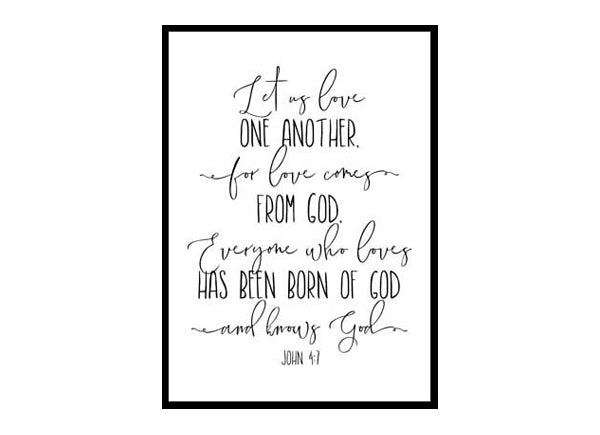 Let us love
ONE ANOTHER,
for love comes
FROM GOD.
Everyone who loves
HAS BEEN BORN OF GOD
and knows God
JOHN 4:7